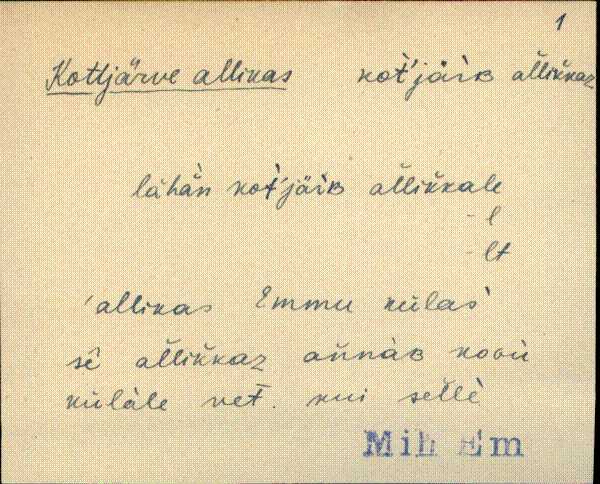 1
Kottjärve allikas kot̀'jäìʙ al̆lik̆kaz
lähän kot̀'jäìʙ al̆lik̆kale
- l
- lt
'allikas Emmu külas
sê al̆lik̆kaz an̆naʙ koɢù
külale vet. kui sel̆lè
Mih Em